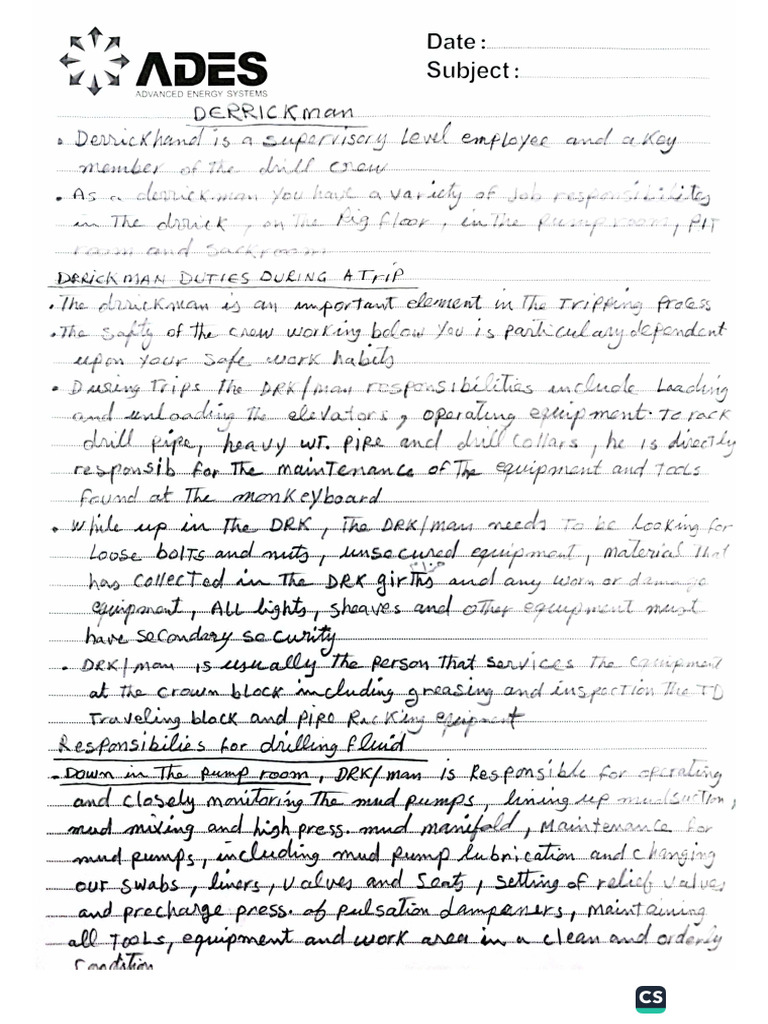 ADES
ADVANCED ENERGY SYSTEMS
Date :
Subject :
DERRICKman
• Derrickhand is a supervisory Level employee and a Key
member of the drill crew
• As a derrickman you have a variety of Job responsibilites
in The drrick, on the Rig floor, in the Pump room, PIT
room and Sackroom
DERRICKMAN DUTIES DURING A Trip
• The drrickman is an important element in The Tripping Process
• The Safty of the crew working below You is Particulary dependent
upon Your Safe work habits
• During Trips The DRK/man responsibilities include Loading
and unloading The elevators, operating equipment To rack
drill pipe, heavy wt. Pipe and drill Collars, he is directly
responsib for The maintenance of The equipment and Tools
found at The monkeyboard
• While up in The DRK, The DRK/man needs To be looking for
Loose bolts and nuts, unsecured equipment, material That
has Collected in The DRK girths and any worn or damage
حزام
equipment, ALL lights, sheaves and other equipment must
have secondary security
• DRK/man is usually The Person That services The equipment
at the Crown block including greasing and inspection The TD
Traveling block and Pipe Racking equipment
Responsibilies for drilling fluid
• Down in The pump room, DRK/man is Responsible for operating
and closely monitoring The mud pumps, lining up mud suction,
mud mixing and high press. mud manifold, Maintenance for
mud pumps, including mud pump lubrication and changing
our swabs, liners, valves and Seats, Setting of relief valves
and precharge press. of pulsation dampeners, maintaining
all Tools, equipment and work area in a clean and orderly
Condition
CS